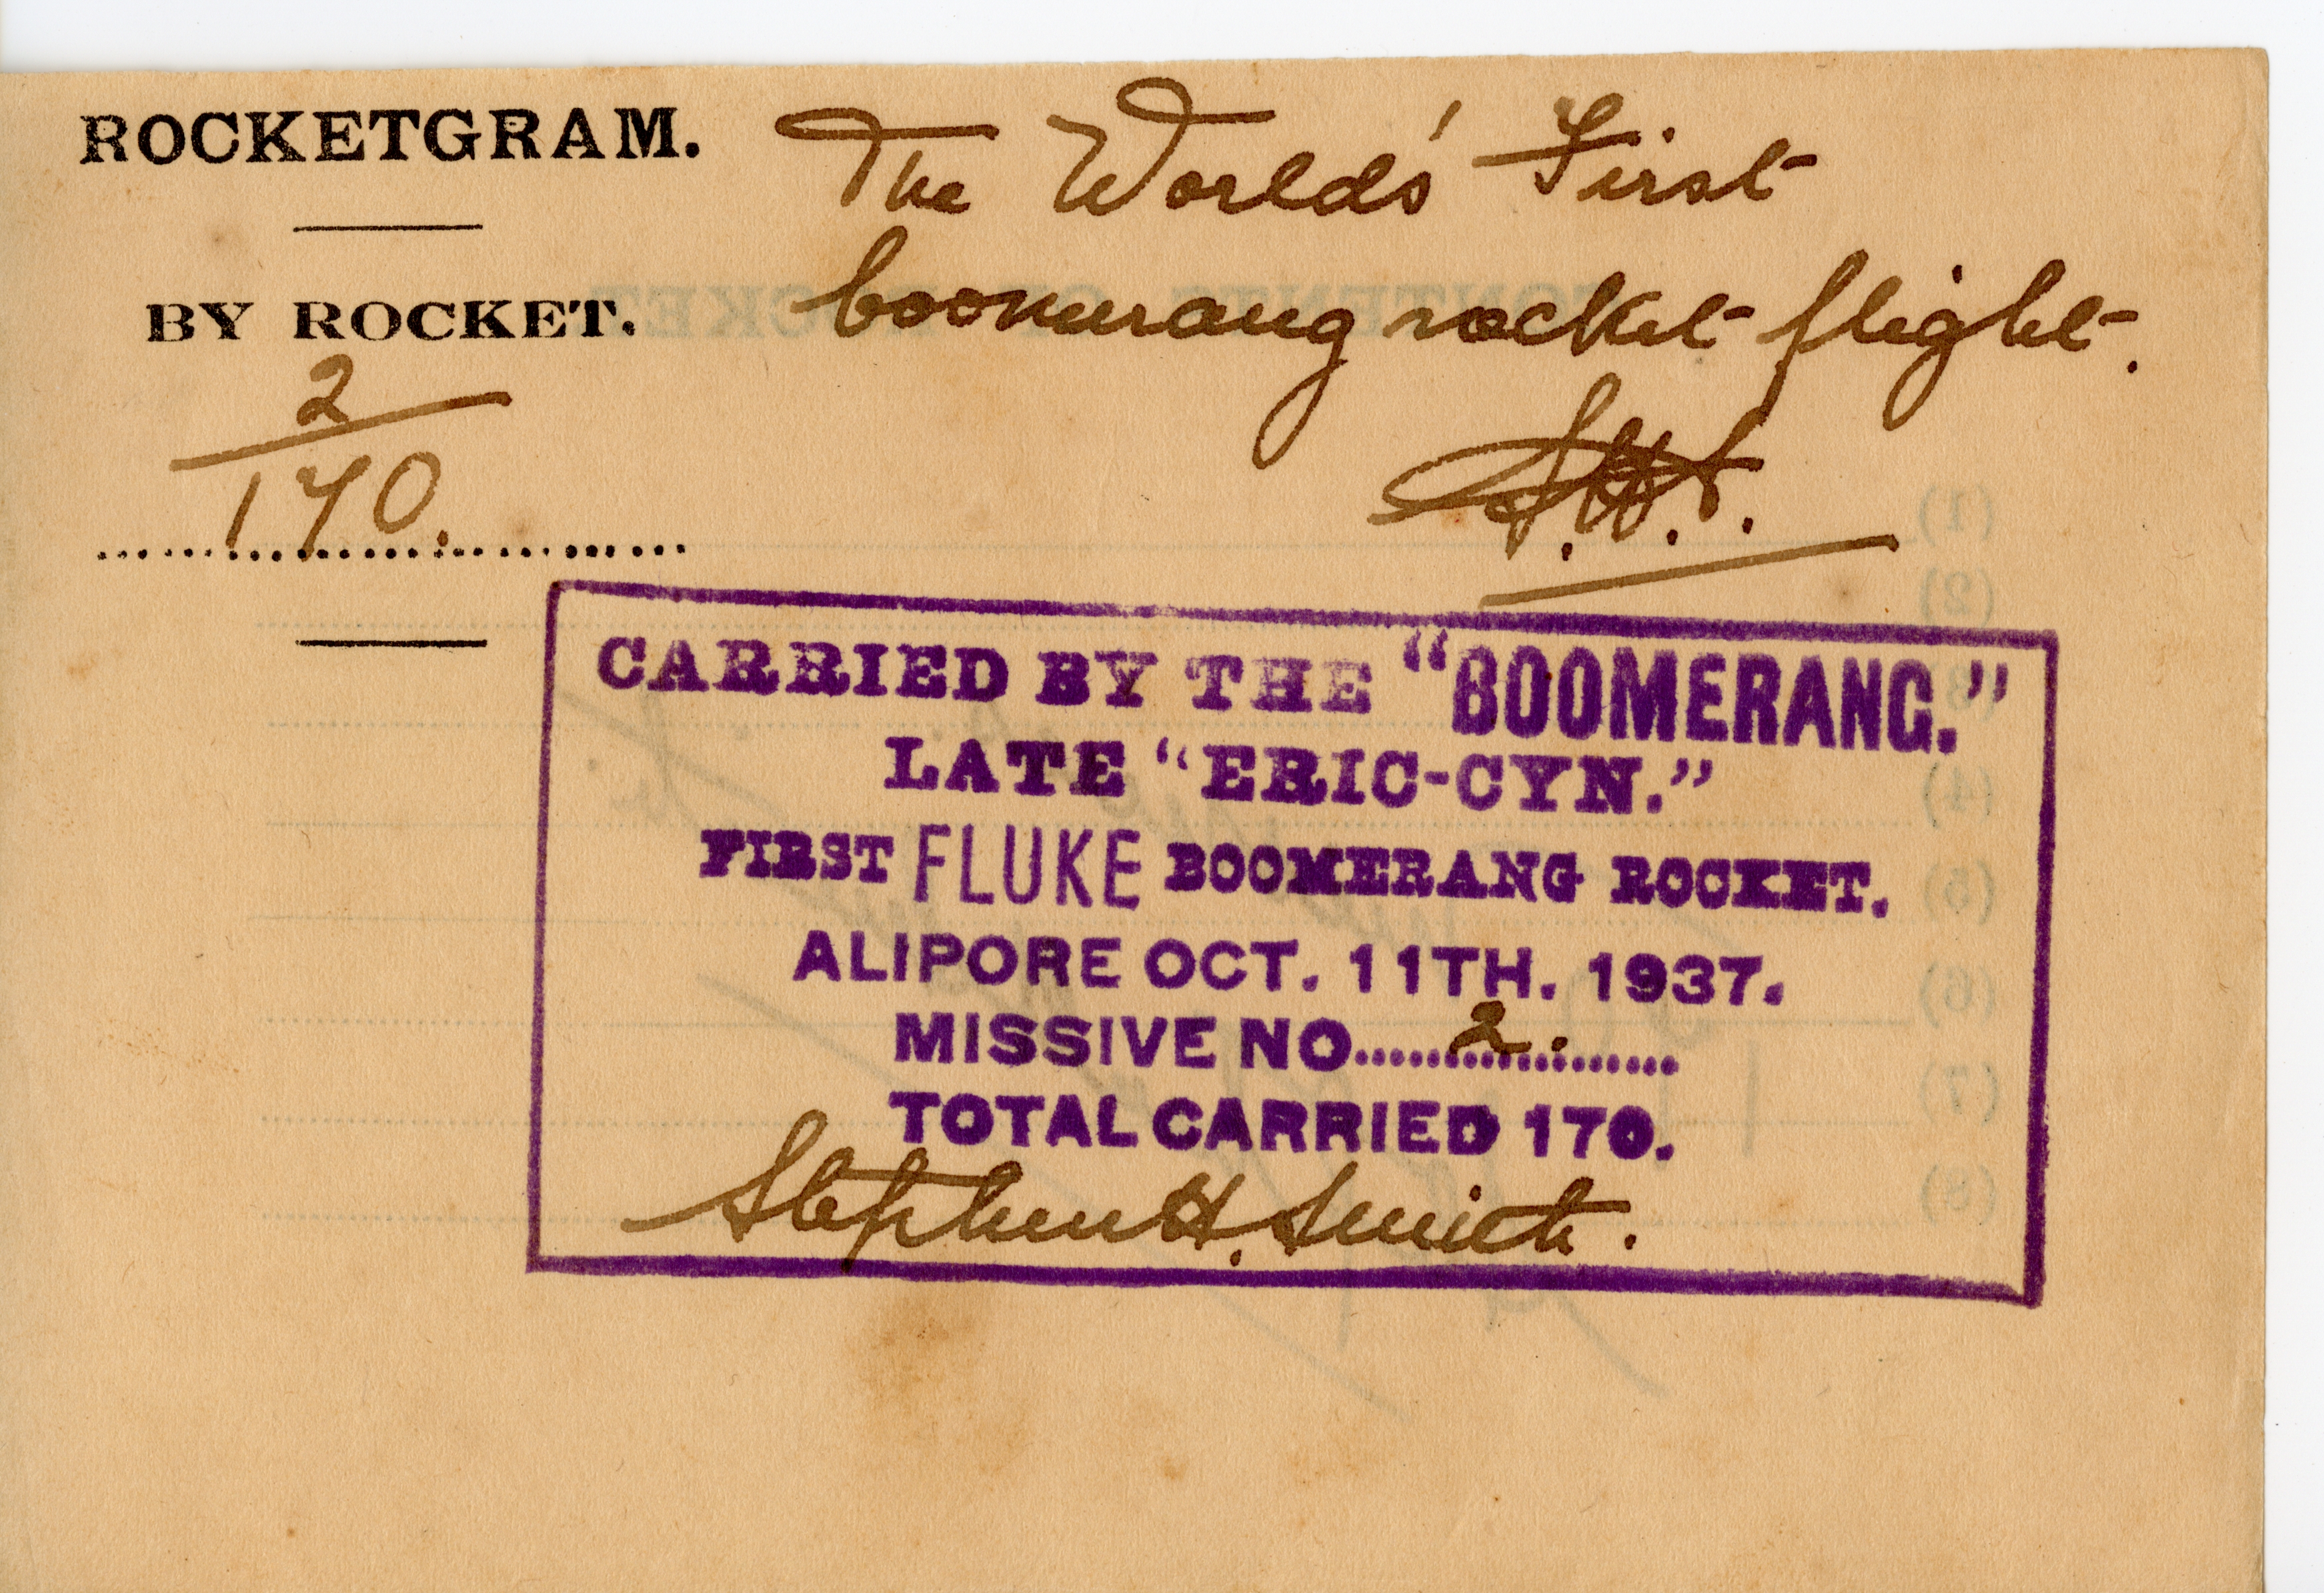 ROCKETGRAM.
The World's First
BY ROCKET.
boomerang rocket flight.
2
170.
S.H.S.
CARRIED BY THE "BOOMERANG."
LATE "ERIC-CYN."
FIRST FLUKE BOOMERANG ROCKET.
ALIPORE OCT. 11TH. 1937.
MISSIVE NO.......2.............
TOTAL CARRIED 170.
Stephen H. Smith.
(1)
(2)
(4)
(5)
(6)
(7)
(8)